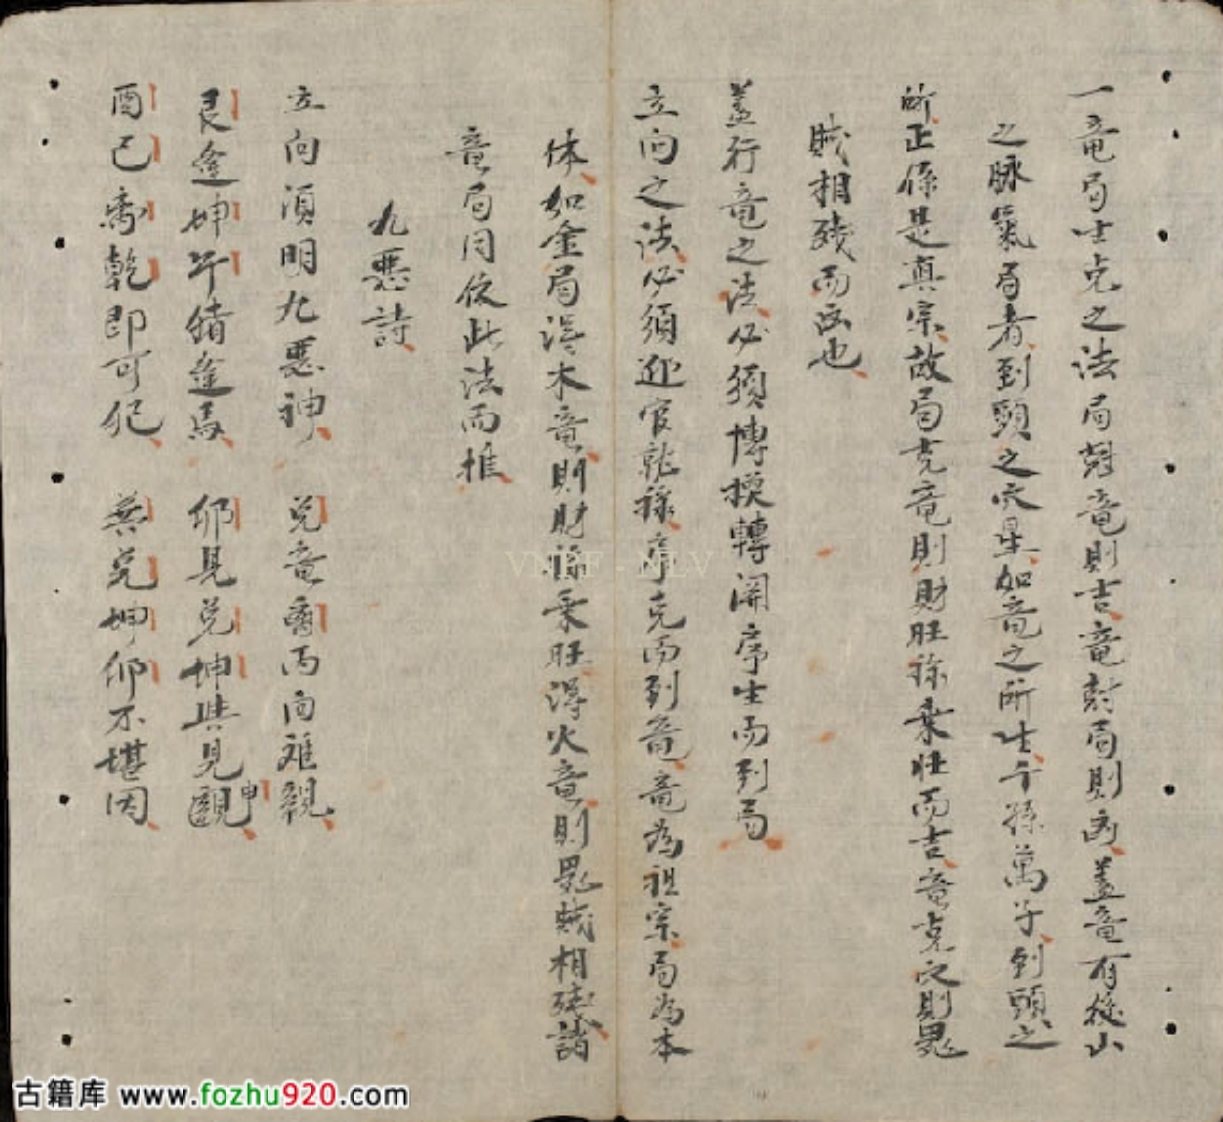 一竜局士克之法局尅竜則吉竜尅局則凶盖竜有後山
之脉氣局者到頭之穴星如竜之所生千孫萬子到頭之
所正係是真宗故局克竜則財旺祿乘旺而吉竜克之則鬼
賊相残而凶也
盖行竜之法必須博換轉関序生而到局
立向之法必須迎官就祿序克而到竜竜為祖宗局為本
体如金局得木竜則財祿乘旺得火竜則鬼賊相残諸
竜局同依此法而推
九惡詩
立向須明九惡神 兌竜丙向难親
艮逢坤午猪逢馬 卯見兌坤與見申
酉己乾即可犯 巽兌坤卯不堪因
VNPF - NLV
古籍库 www.fozhu920.com